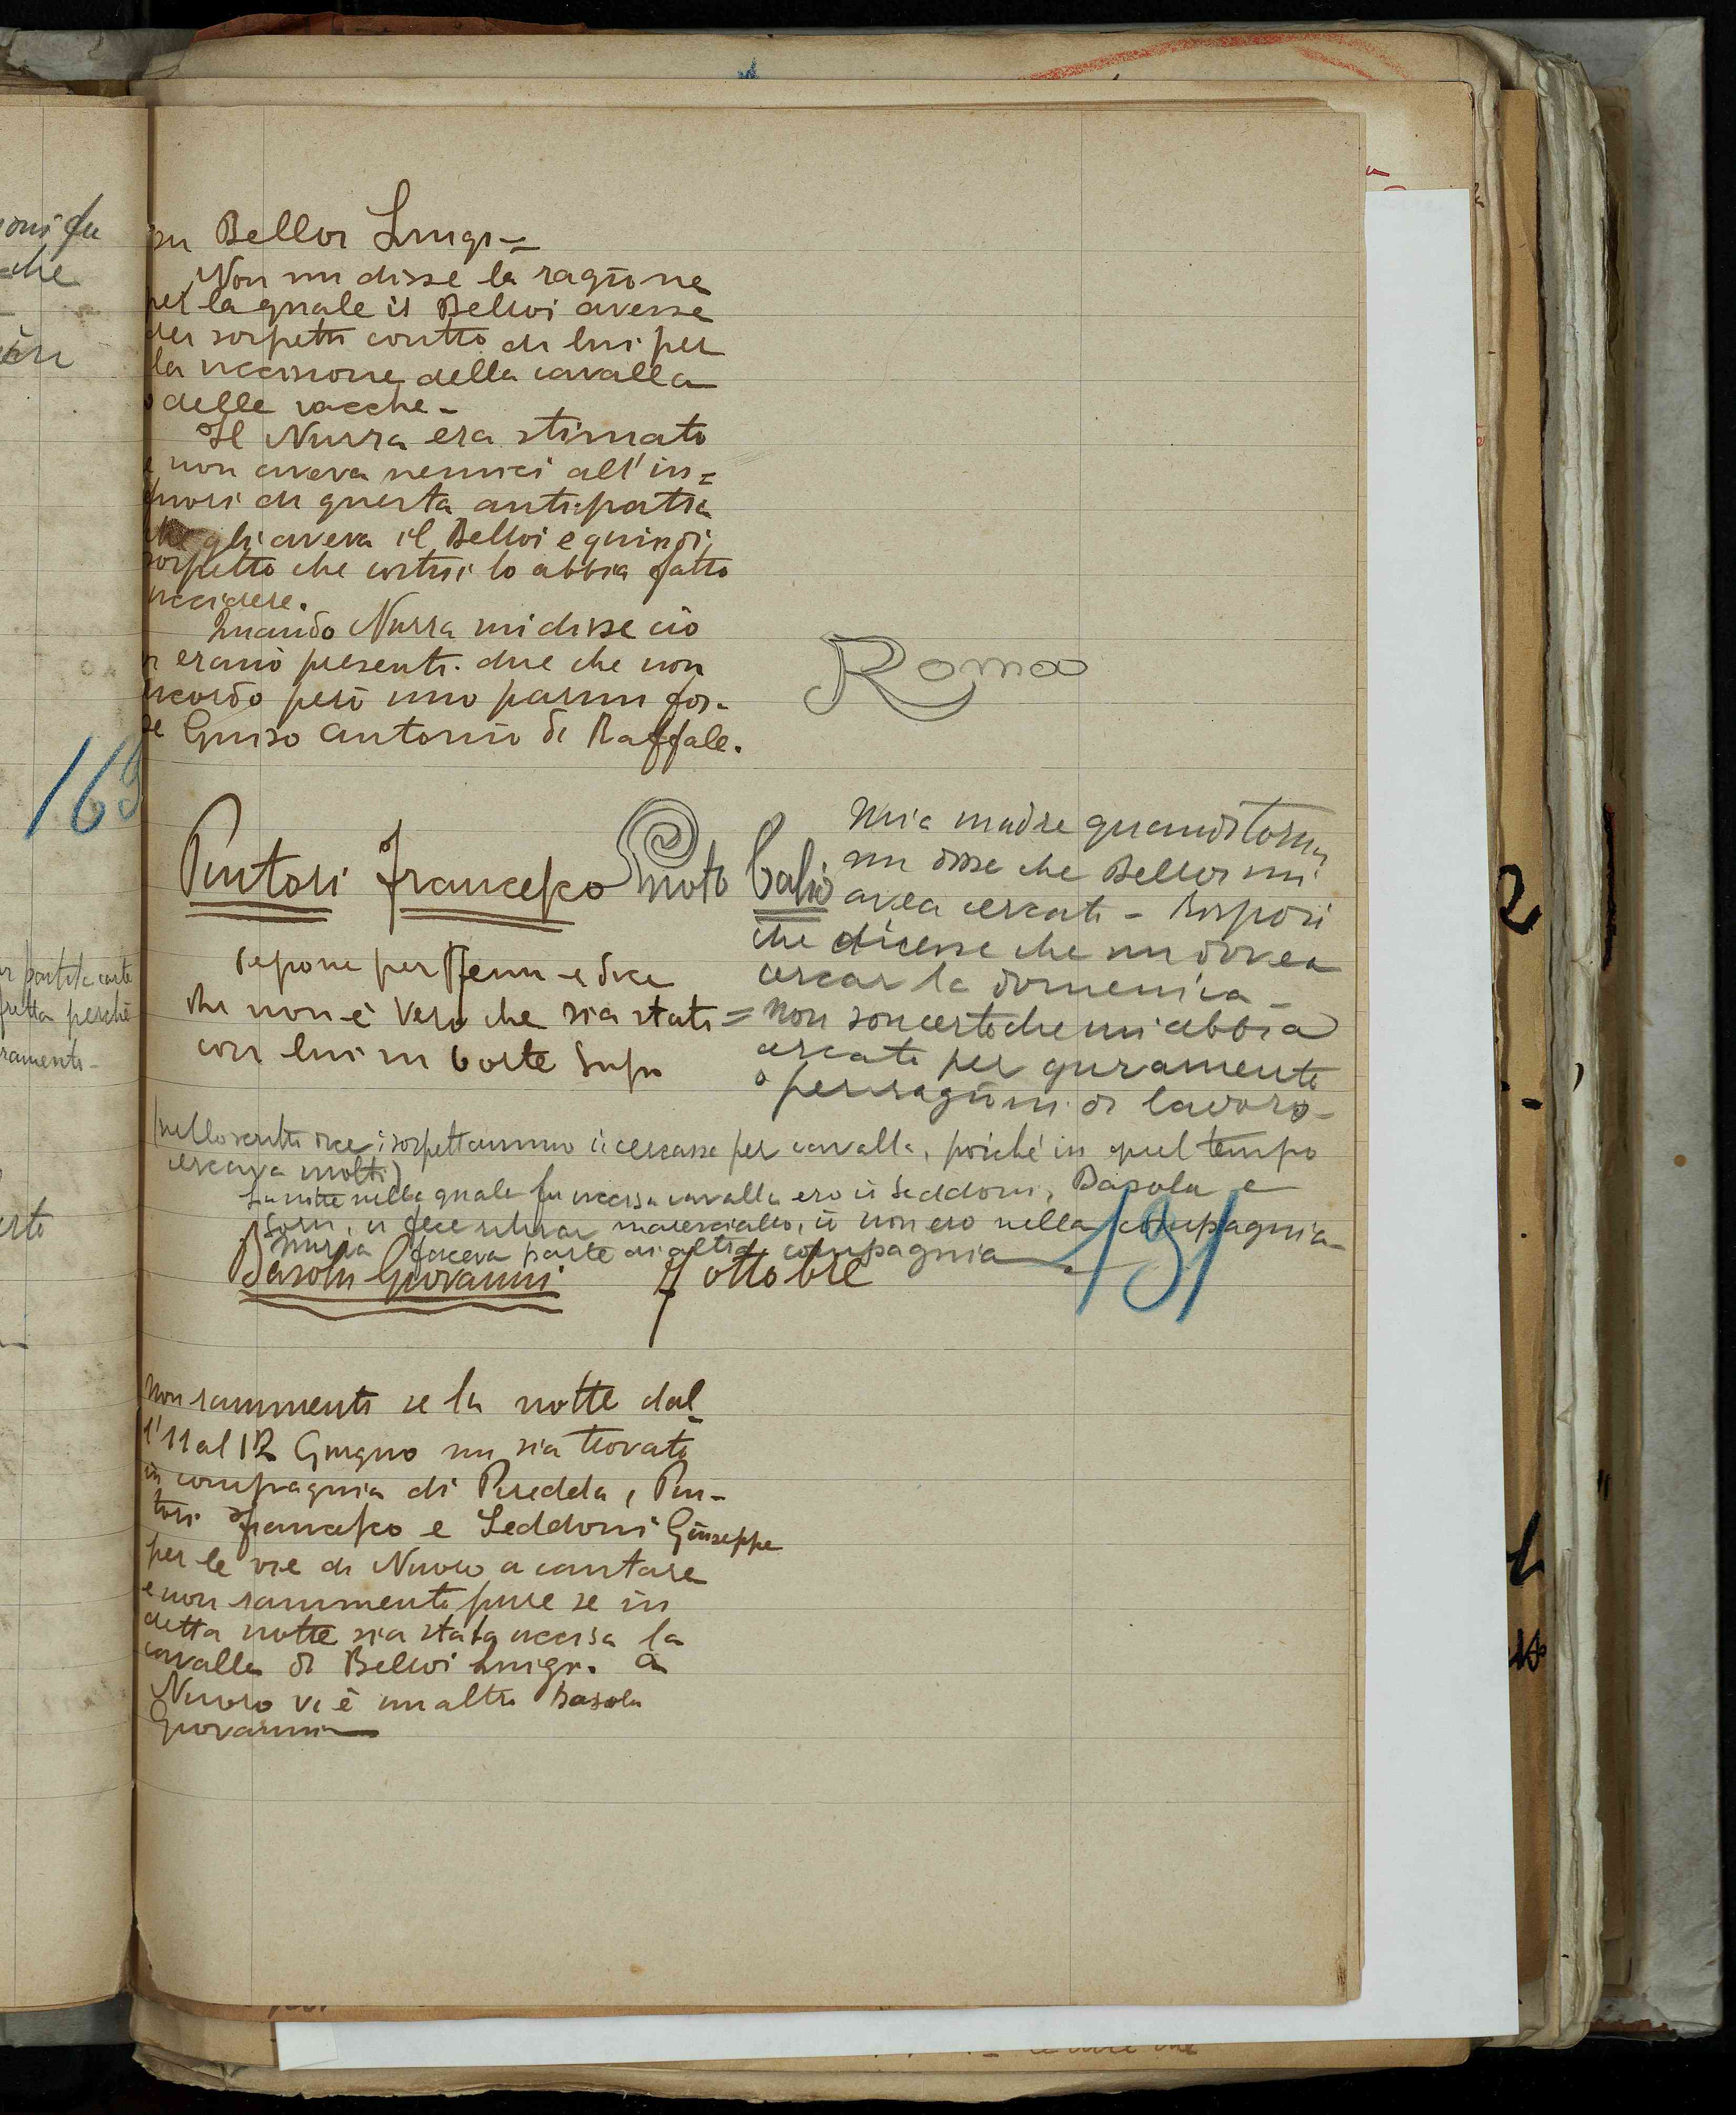 Belloi Luigi =
Non mi disse la ragione
per la quale il Belloi avesse
dei sospetti contro di lui per
la uccisione della cavalla
o delle vacche -
Il Nurra era stimato
e non aveva nemici all'in=
fuori di questa antipatia
che gli aveva il Belloi e quindi
sospetto che costui lo abbia fatto
uccidere.
Quando Nurra mi disse ciò
vi erano presenti due che non
ricordo però uno parmi for-
se Guiso Antonio di Raffale.
Roma
Pintori Francesco noto
depone per e dice
che non è vero che sia stato
con lui in Corte Supo
Mia madre quando tornai
mi disse che Belloi mi
avea cercato - Risposi
che dicesse che mi dovea
cercar la domenica -
= Non son certo che mi abbia
cercato per giuramento
o per ragioni di lavoro -
(nello scritto dice: sospettammo ci cercasse per cavalla, poiché in quel tempo
cercava molti)
La notte nella quale fu uccisa cavalla ero io Seddoni, Basolu e
maresciallo, io non ero nella compagnia -
Nurra faceva parte di altra compagnia
191
Basolu Giovanni 7 ottobre
Non rammento se la notte dal-
l'11 al 12 Giugno mi sia trovato
in compagnia di Puredda, Pin-
tori Francesco e Seddoni Giuseppe
per le vie di Nuoro a cantare
e non rammento pure se in
detta notte sia stata uccisa la
cavalla di Belloi Luigi. A
Nuoro vi è un altro Basolu
Giovanni
169